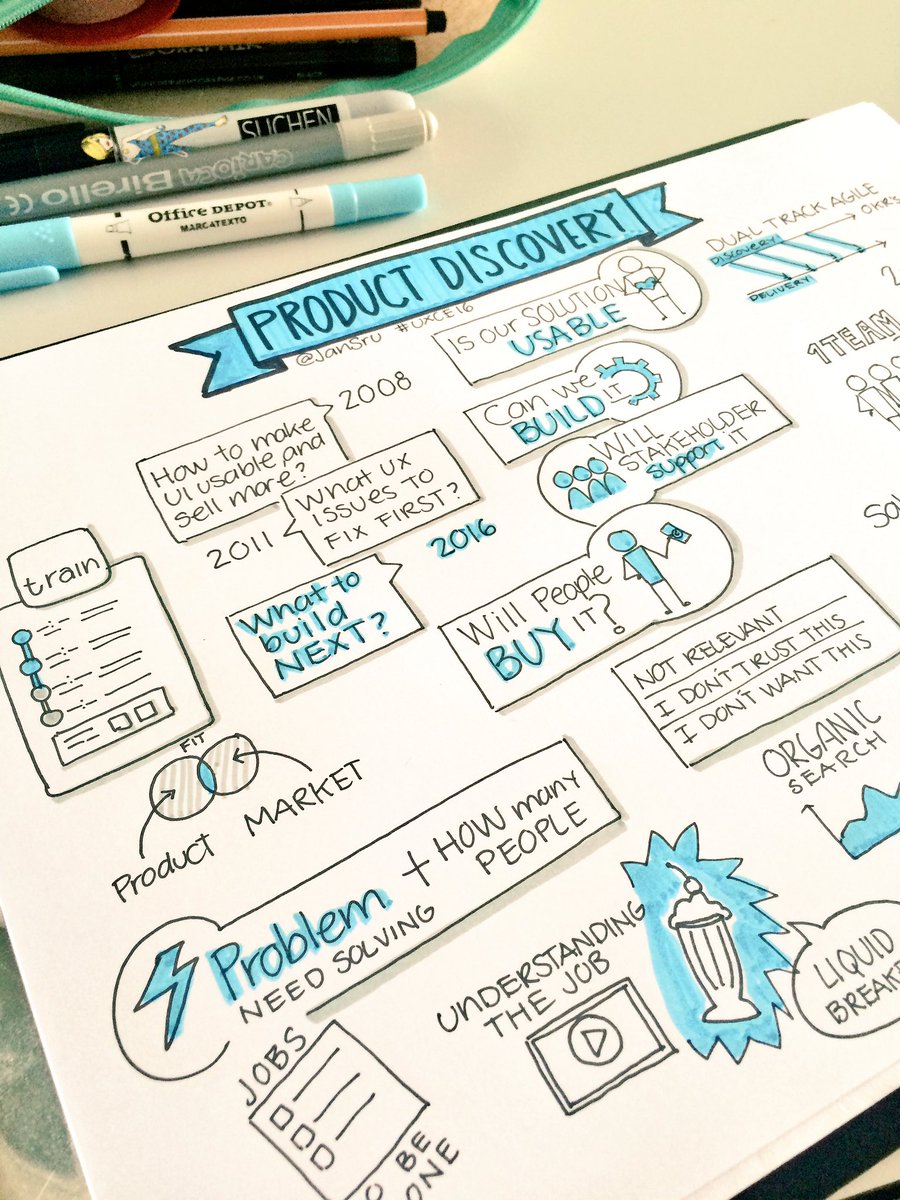 SUCHEN
CARIOCA Birello
Office DEPOT
MARCATEXTO
PRODUCT DISCOVERY
@JanSru #UXCE16
DUAL TRACK AGILE
DISCOVERY
OKRs
DELIVERY
1TEAM
Is our SOLUTION
USABLE
Can we
BUILD IT
WILL
STAKEHOLDER
support IT
Will People
BUY IT?
2008
How to make
UI usable and
sell more?
What UX
ISSUES TO
FIX FIRST?
2011
2016
What to
build
NEXT?
train
NOT RELEVANT
I DON'T TRUST THIS
I DON'T WANT THIS
ORGANIC
SEARCH
FIT
Product MARKET
Problem + HOW many
PEOPLE
NEED SOLVING
UNDERSTANDING
THE JOB
LIQUID
JOBS